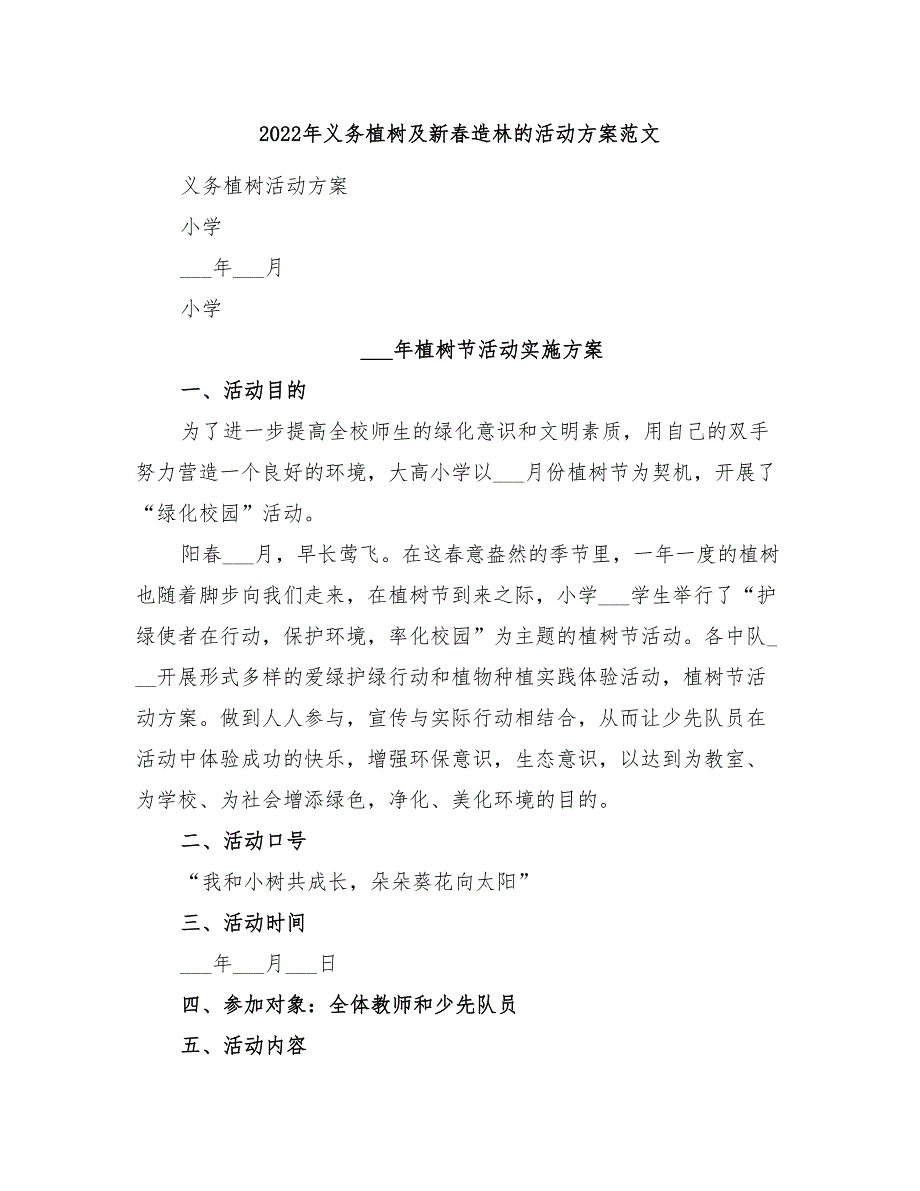 2022年义务植树及新春造林的活动方案范文
义务植树活动方案
小学
___年___月
小学
___年植树节活动实施方案
一、活动目的
为了进一步提高全校师生的绿化意识和文明素质，用自己的双手
努力营造一个良好的环境，大高小学以___月份植树节为契机，开展了
“绿化校园”活动。
阳春___月，早长莺飞。在这春意盎然的季节里，一年一度的植树
也随着脚步向我们走来，在植树节到来之际，小学___学生举行了“护
绿使者在行动，保护环境，率化校园”为主题的植树节活动。各中队_
__开展形式多样的爱绿护绿行动和植物种植实践体验活动，植树节活
动方案。做到人人参与，宣传与实际行动相结合，从而让少先队员在
活动中体验成功的快乐，增强环保意识，生态意识，以达到为教室、
为学校、为社会增添绿色，净化、美化环境的目的。
二、活动口号
“我和小树共成长，朵朵葵花向太阳”
三、活动时间
___年___月___日
四、参加对象：全体教师和少先队员
五、活动内容